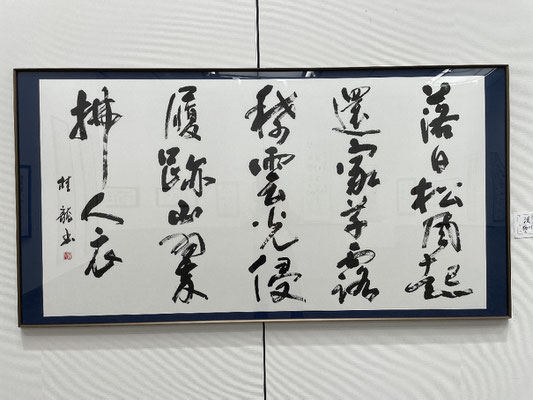 落日松風起
還家草露
晞雲光侵
履跡山翠
拂人衣
桂龍書